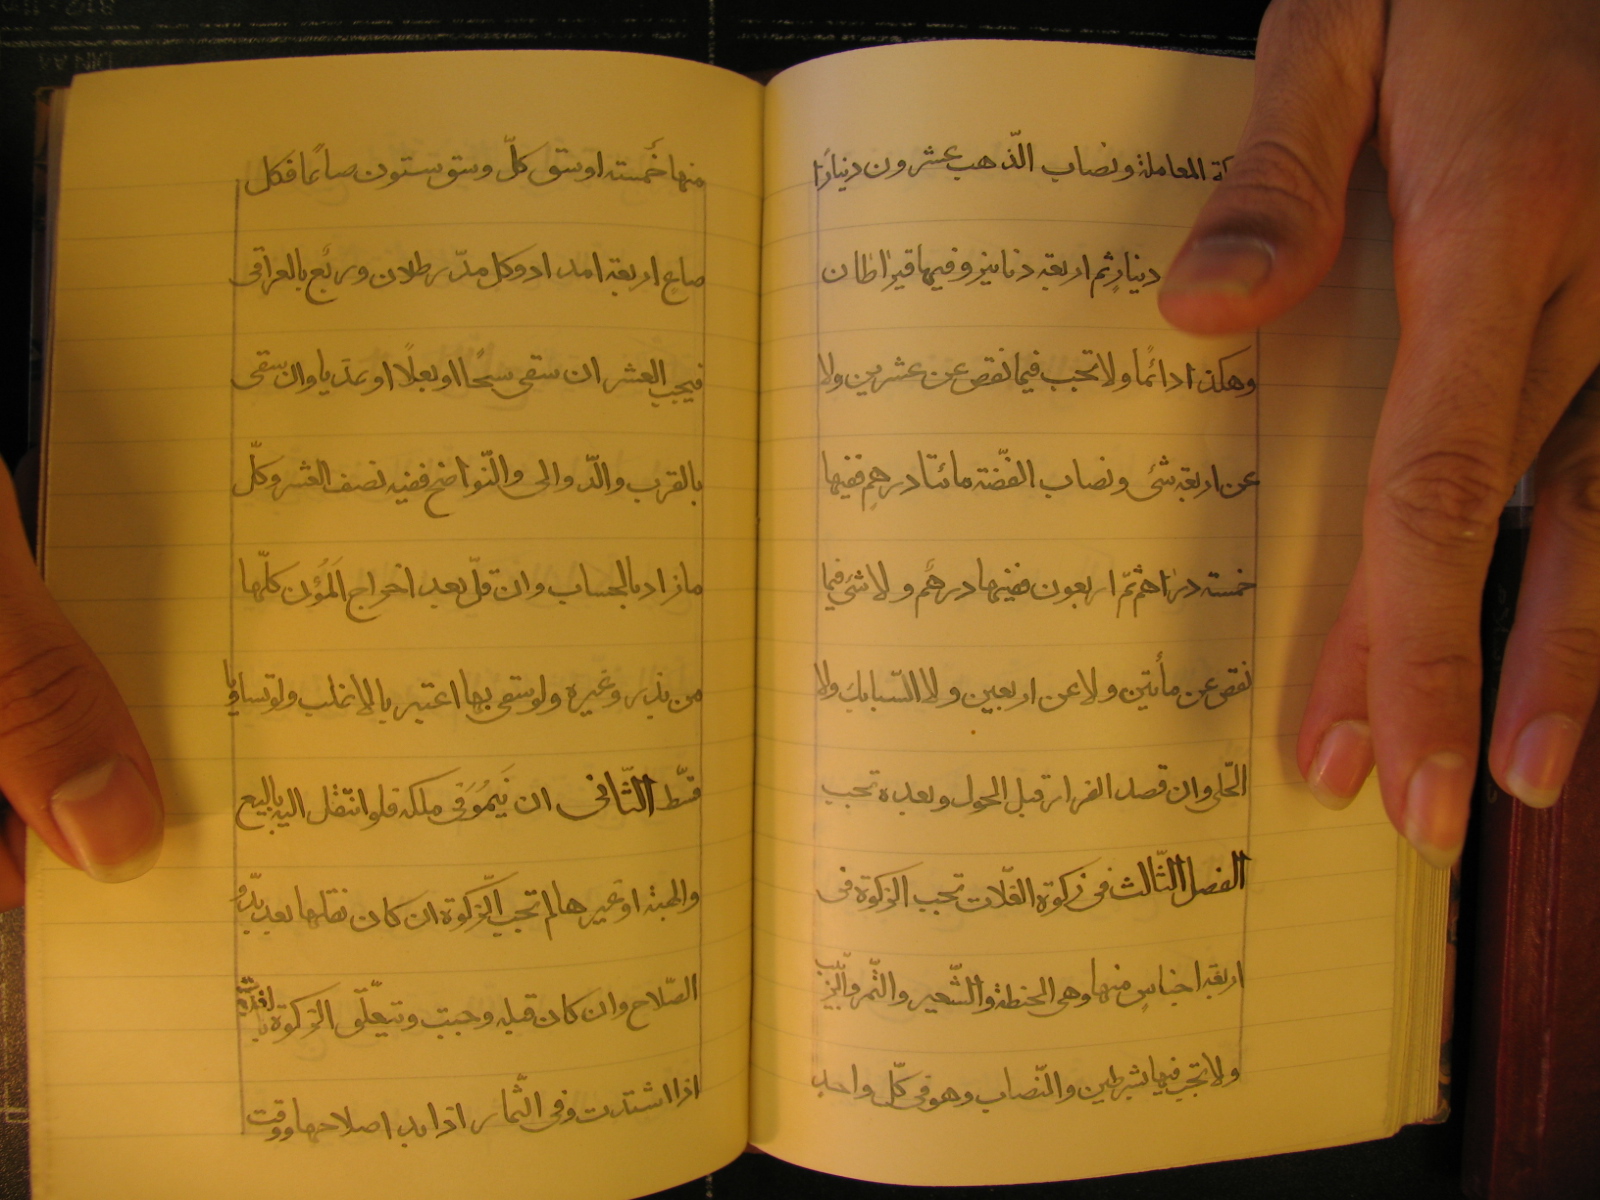 المعاملة ونصاب الذّهب عشرون دينارًا
دينارٍ ثم اربعة دنانيز وفيها قيراطان
وهكذا دائمًا ولا تجب فيما نقص عن عشرين ولا
عن اربعة شئ ونصاب الفضّة مائتا درهم ففيها
خمسة دراهم ثمّ اربعون ففيها درهم ولا شئ فيما
نقص عن مأتين ولا عن اربعين ولا السّبايك ولا
الحّلى وان قصد الفرار قبل الحول وبعده تجب
الفصل الثّالث فى زكوة الغّلات تجب الزكوة فى
اربعة اجناسٍ منها وهى الحنطة والشّعير والتّمر والزّبيب
ولا تجب فيها بشرطين والنّصاب وهو فى كلّ واحد
منها خمسة اوسق كلّ وسق ستون صاعًا فكل
صاع اربعة امداد وكل مدّ رطلان وربع بالعراقى
فيجب العشر ان سقى سيحًا او بعلًا او عذيا وان سقى
بالقرب والدّوالى والنّواضح ففيه نصف العشر وكلّ
ما زاد بالحساب وان قلّ بعد اخراج المؤن كلّها
من بذر وغيره ولو سقى بها اعتبر بالاغلب ولو تساويا
قسّط الثّانى ان ينمو فى ملكه فلو انتقل اليه بالبيع
والهبة او غيرها لم تجب الزّكوة ان كان نقلها بعد بدّو
الصّلاح وان كان قبله وجبت وتتعلّق الزّكوة بالغلّة
اذا اشتدت وفى الثّمار اذا بدا صلاحها ووقت